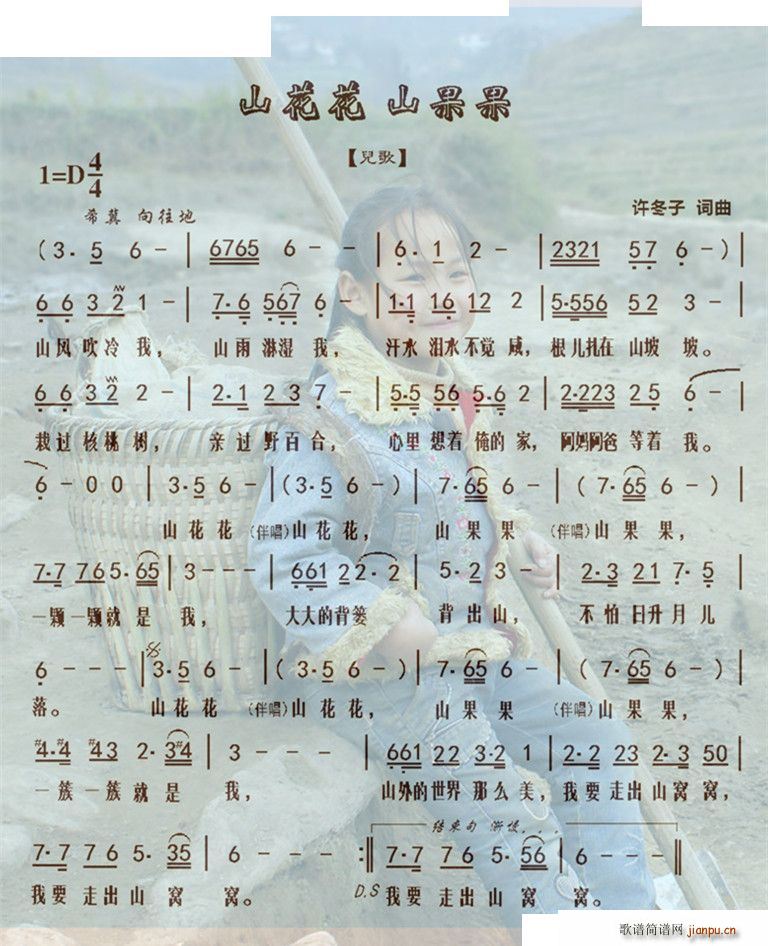 山花花 山果果
【兒歌】
1=D 4/4
希冀 向往地
许冬子 词曲
(3·5 6 - | 6765 6 - - | 6·1 2 - | 2321 57 6 - ) |
6 6 3 2 1 - | 7·6 567 6 - | 1·1 16 12 2 | 5·556 52 3 - |
山风吹冷我， 山雨淋湿我， 汗水泪水不觉咸，根儿扎在山坡坡。
6 6 3 2 2 - | 2·1 2·3 7 - | 5·5 56 5·6 2 | 2·223 25 6 - |
栽过核桃树， 亲过野百合， 心里想着俺的家，阿妈阿爸等着我。
6 - 0 0 | 3·5 6 - | (3·5 6 - ) | 7·65 6 - | (7·65 6 - ) |
山花花 (伴唱)山花花， 山果果 (伴唱)山果果，
7·7 765·65 | 3 - - - | 661 2 2·2 | 5·2 3 - | 2·3 21 7·5 |
一颗一颗就是我， 大大的背篓 背出山， 不怕日升月儿
6 - - - | 3·5 6 - | (3·5 6 - ) | 7·65 6 - | (7·65 6 - ) |
落。 山花花 (伴唱)山花花， 山果果 (伴唱)山果果，
#4·#4 #43 2·3#4 | 3 - - - | 661 22 3·2 1 | 2·2 23 2·3 50 |
一簇一簇就是我， 山外的世界那么美，我要走出山窝窝，
结束句 渐慢...
7·7 76 5·35 | 6 - - - :‖ 7·7 76 5·56 | 6 - - - ‖
我要走出山窝窝。 D.S 我要走出山窝窝。
歌谱简谱网 jianpu.cn